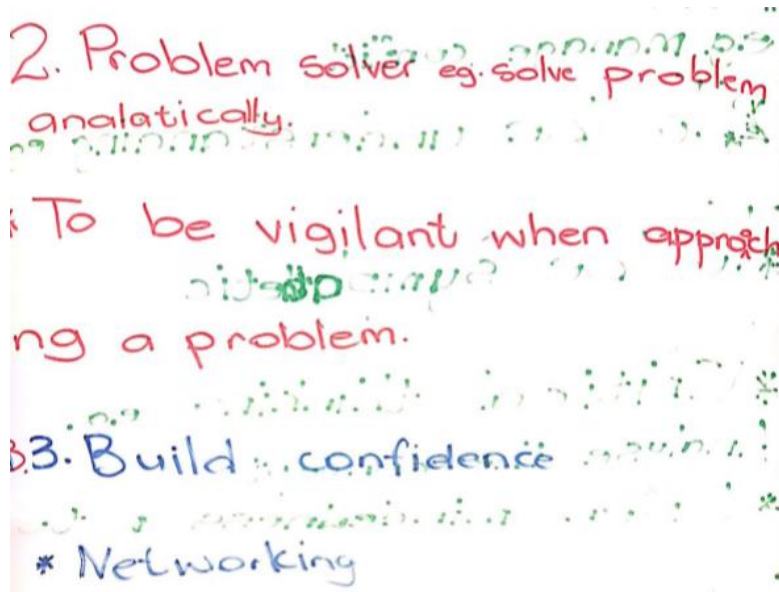 2. Problem solver eg. solve problem
analatically.
* To be vigilant when approach
ng a problem.
3. Build confidence
* Networking